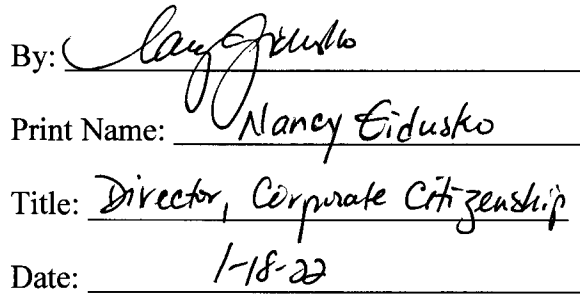 By: Nancy Eidusko
Print Name: Nancy Eidusko
Title: Director, Corporate Citizenship
Date: 1-18-22